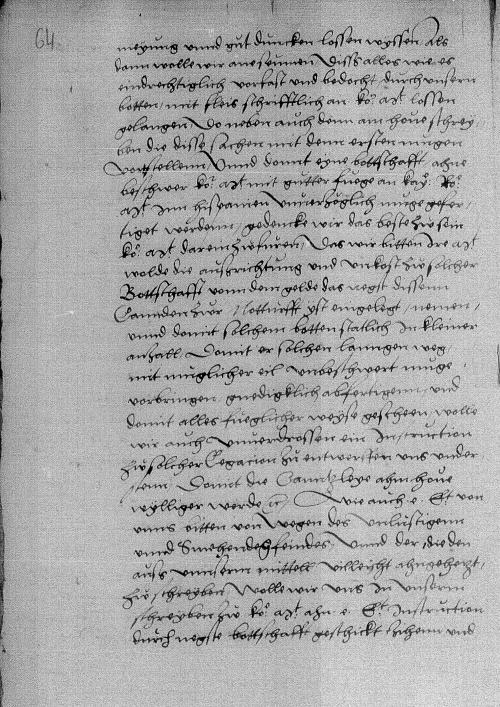 64.
meynung unnd gut duncken lossen wyssen Als
dann wolle wir ane seumen disß alles wie es
eindrechtiglich vorfast und bedocht durch unsern
botten mit fleis schrifftlich an ko: Mt lossen
gelangen, Do neben auch denn am houe schrey
ben die disse sachen mit dem ersten mugen
vorstellenn, Unnd domit eyne bottschafft ahne
beschwer ko: Mt mit gutter fuege an kay: Ro:
Mt Inn hispanien unuerzuglich muge gefer,
tiget werdenn, gedencke wir das beste zw sein
ko: Mt daren zw furen, Das wir bitten Ire Mt
wolde die ausrichtung und unkost zw solcher
Bottschafft vonn dem gelde das negst dissenn
Landen zur Notturfft yst eingelegt, nemen,
unnd domit solchenn botten statlich In kleiner
anzall Domit er solchen langen weg
mit muglicher eil unbeschwert muge
vorbringen, gnedigklich abfertigenn, und
domit alles fueglicher weyse gescheen, wolle
wir auch unuerdrossen ein Instruction
zw solcher Legacion zu entwerffen uns under
stenn, Domit die Cantzleye ahm houe
wylliger werde etc. Wie auch e. G. von
unns bitten von wegen des unlustigenn
unnd feindes, unnd der, die den
auß unnserm mittell villeicht ahngeheyzt,
zw schreyben, Wolle wir uns In unserm
schreyben zw ko: Mt ahn e. G. Instruction
durch negste bottschafft geschickt zihenn und